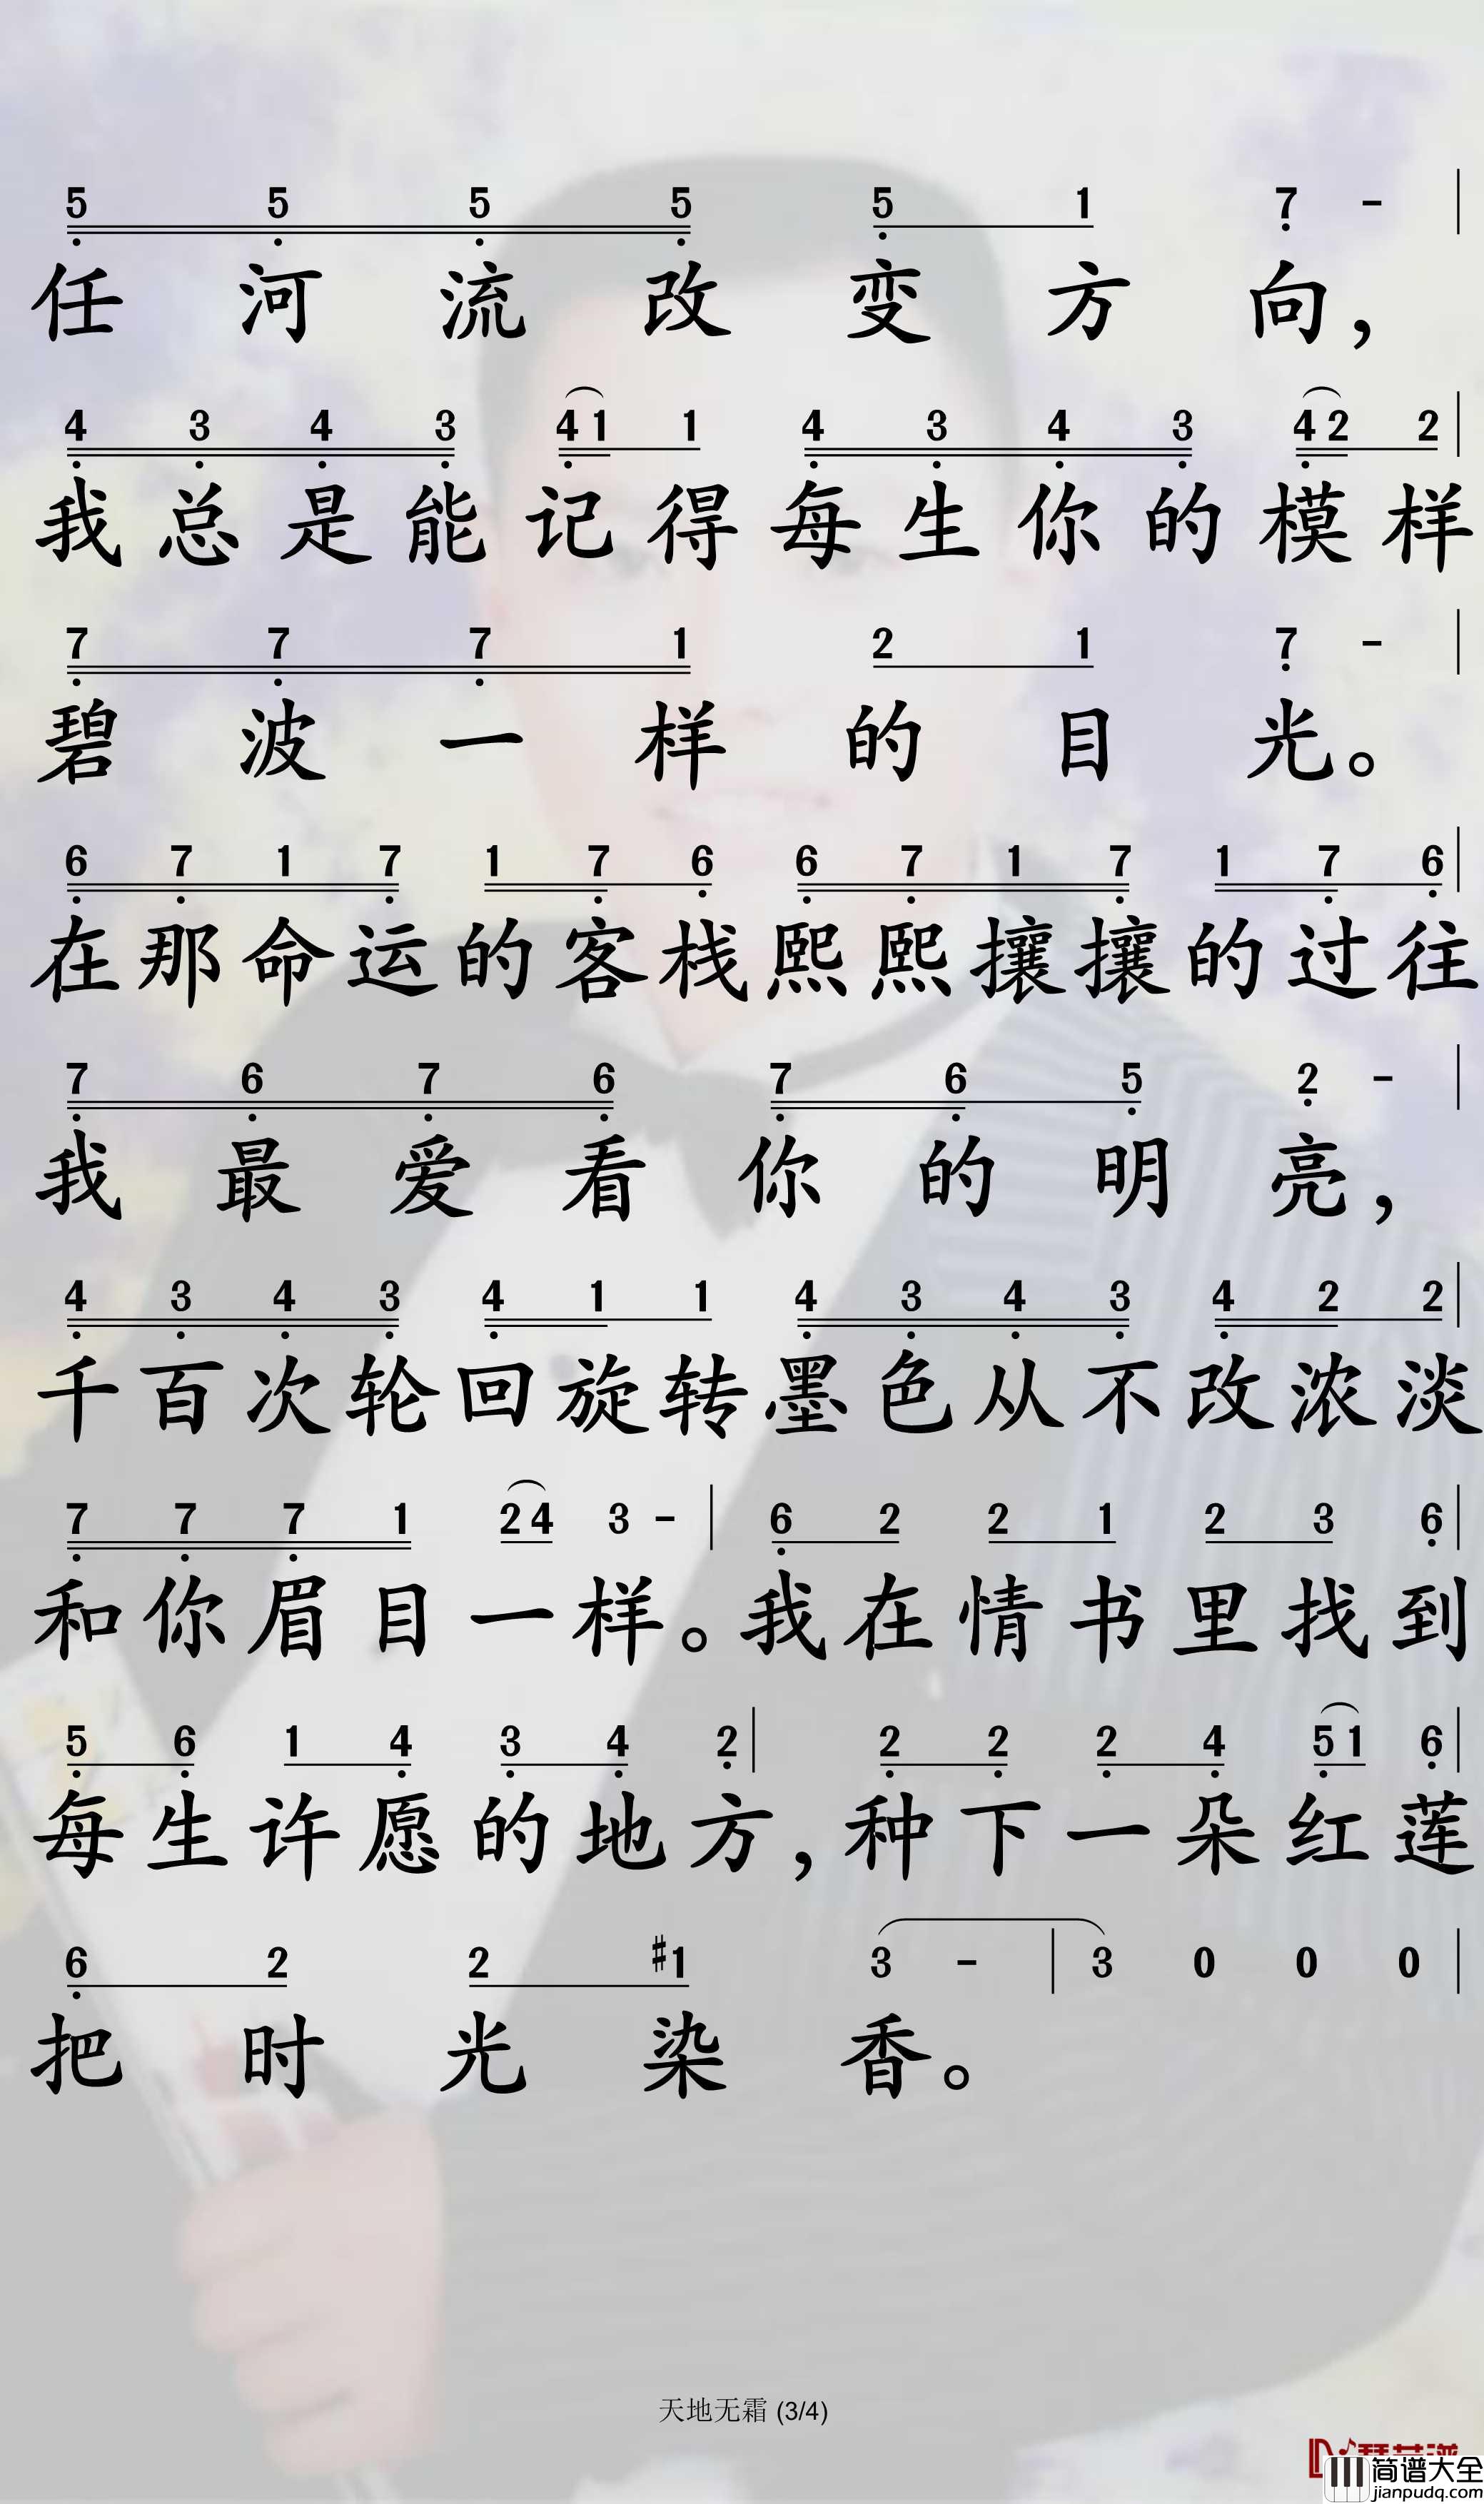 5 5 5 5 5 1 7 -
任河流改变方向，
4 3 4 3 4 1 1 4 3 4 3 4 2 2
我总是能记得每生你的模样
7 7 7 1 2 1 7 -
碧波一样的目光。
6 7 1 7 1 7 6 6 7 1 7 1 7 6
在那命运的客栈熙熙攘攘的过往
7 6 7 6 7 6 5 2 -
我最爱看你的明亮，
4 3 4 3 4 1 1 4 3 4 3 4 2 2
千百次轮回旋转墨色从不改浓淡
7 7 7 1 2 4 3 - 6 2 2 1 2 3 6
和你眉目一样。我在情书里找到
5 6 1 4 3 4 2 2 2 2 4 5 1 6
每生许愿的地方，种下一朵红莲
6 2 2 #1 3 - 3 0 0 0
把时光染香。
天地无霜 (3/4)
简谱大全
jianpudq.com